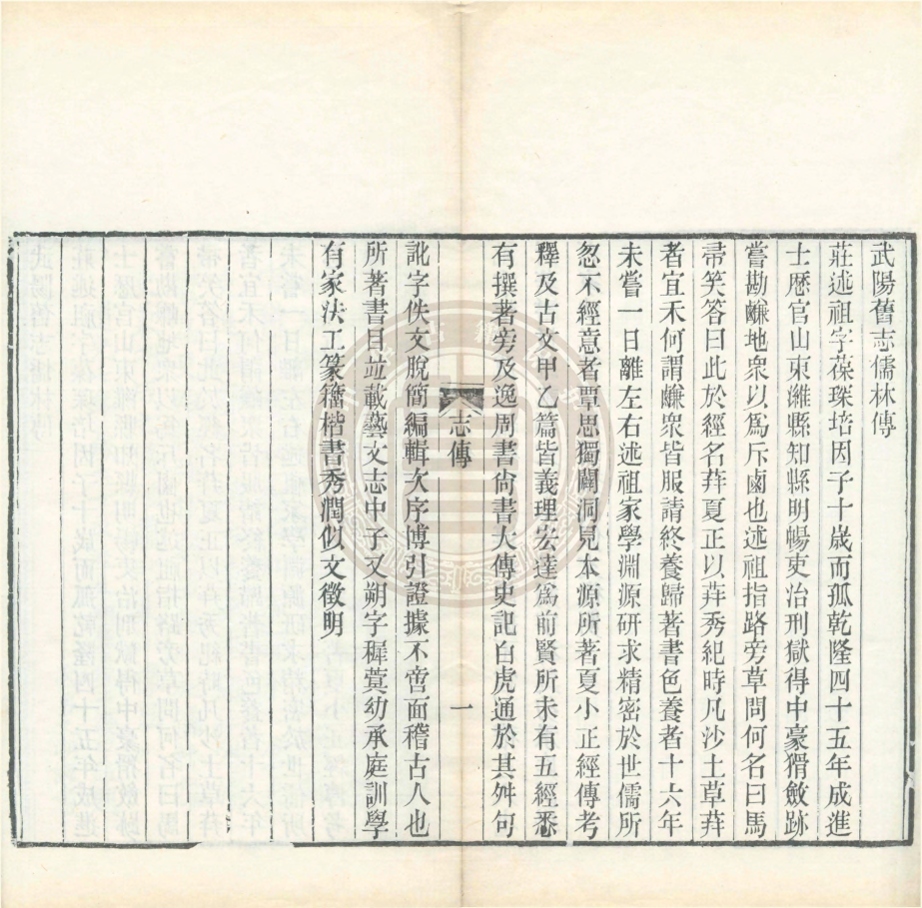 武陽舊志儒林傳
莊述祖字葆琛培因子十歲而孤乾隆四十五年成進
士歷官山東濰縣知縣明暢吏治刑獄得中豪猾斂跡
嘗勘鹻地衆以爲斥鹵也述祖指路旁草問何名曰馬
帚笑答曰此於經名荓夏正以荓秀紀時凡沙土草荓
者宜禾何謂鹻衆皆服請終養歸著書色養者十六年
未嘗一日離左右述祖家學淵源研求精密於世儒所
忽不經意者覃思獨闢洞見本源所著夏小正經傳考
釋及古文甲乙篇皆義理宏達爲前賢所未有五經悉
有撰著旁及逸周書尙書大傳史記白虎通於其舛句
志傳
一
訛字佚文脫簡編輯次序博引證據不啻面稽古人也
所著書目竝載藝文志中子又朔字稺蓂幼承庭訓學
有家法工篆籒楷書秀潤似文徵明